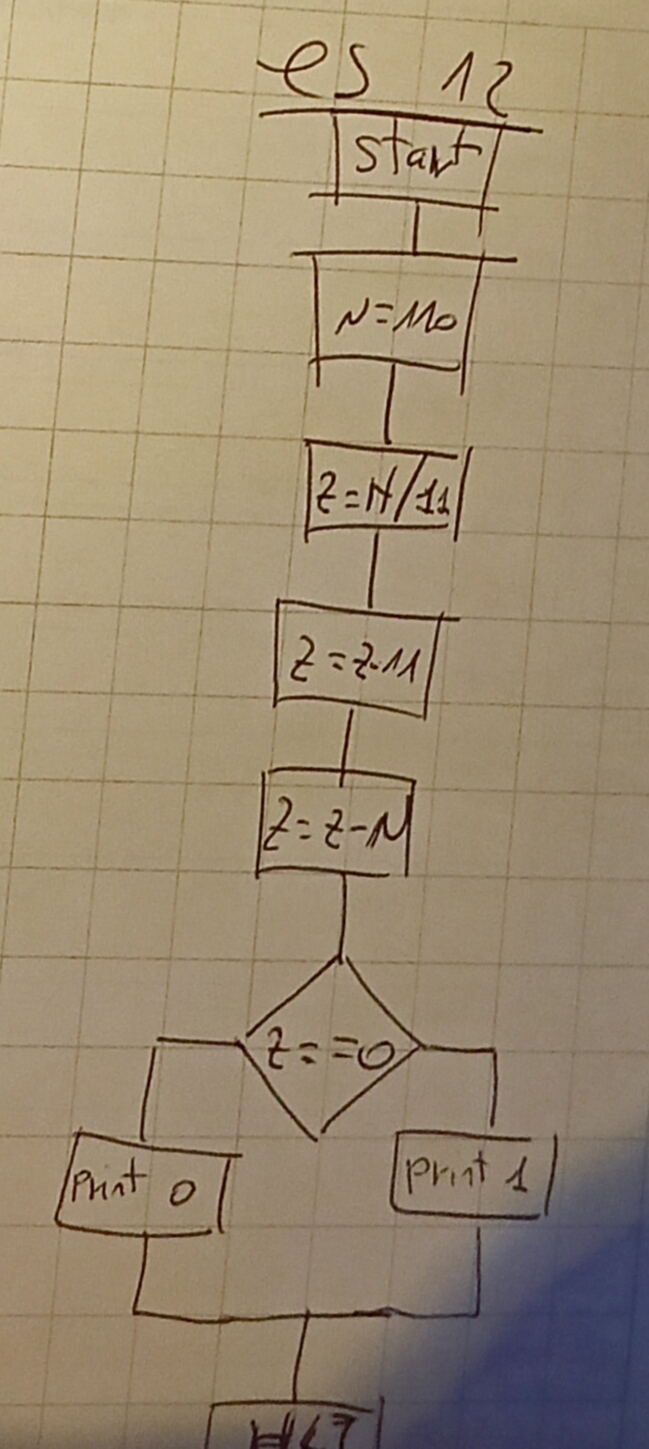 es 12
start
N=110
Z=N/11
Z=Z-11
Z=Z-N
Z==0
Print 0
Print 1